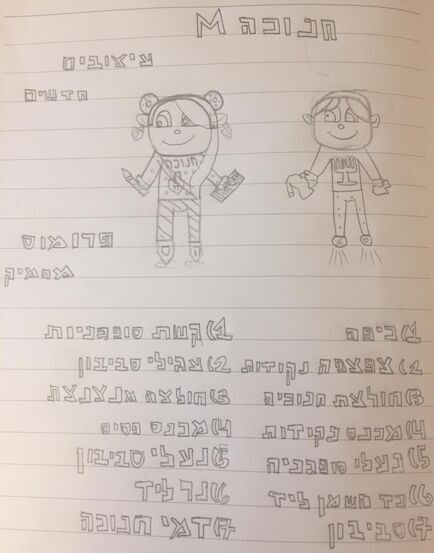 חנוכה M
עיצובים
חדשים
חנוכה
פרומוס
מהמיק
1) כיפה
2) צפצפה נקודות
3) חולצת חנוכיה
4) מכנס נקודות
5) נעלי סופגניה
6) כד השמן ליד
7) סביבון
1) קשת סופגניות
2) עגילי סביבון
3) חולצה מנצנצת
4) מכנס פסים
5) נעלי סביבון
6) נר ליד
7) דמי חנוכה